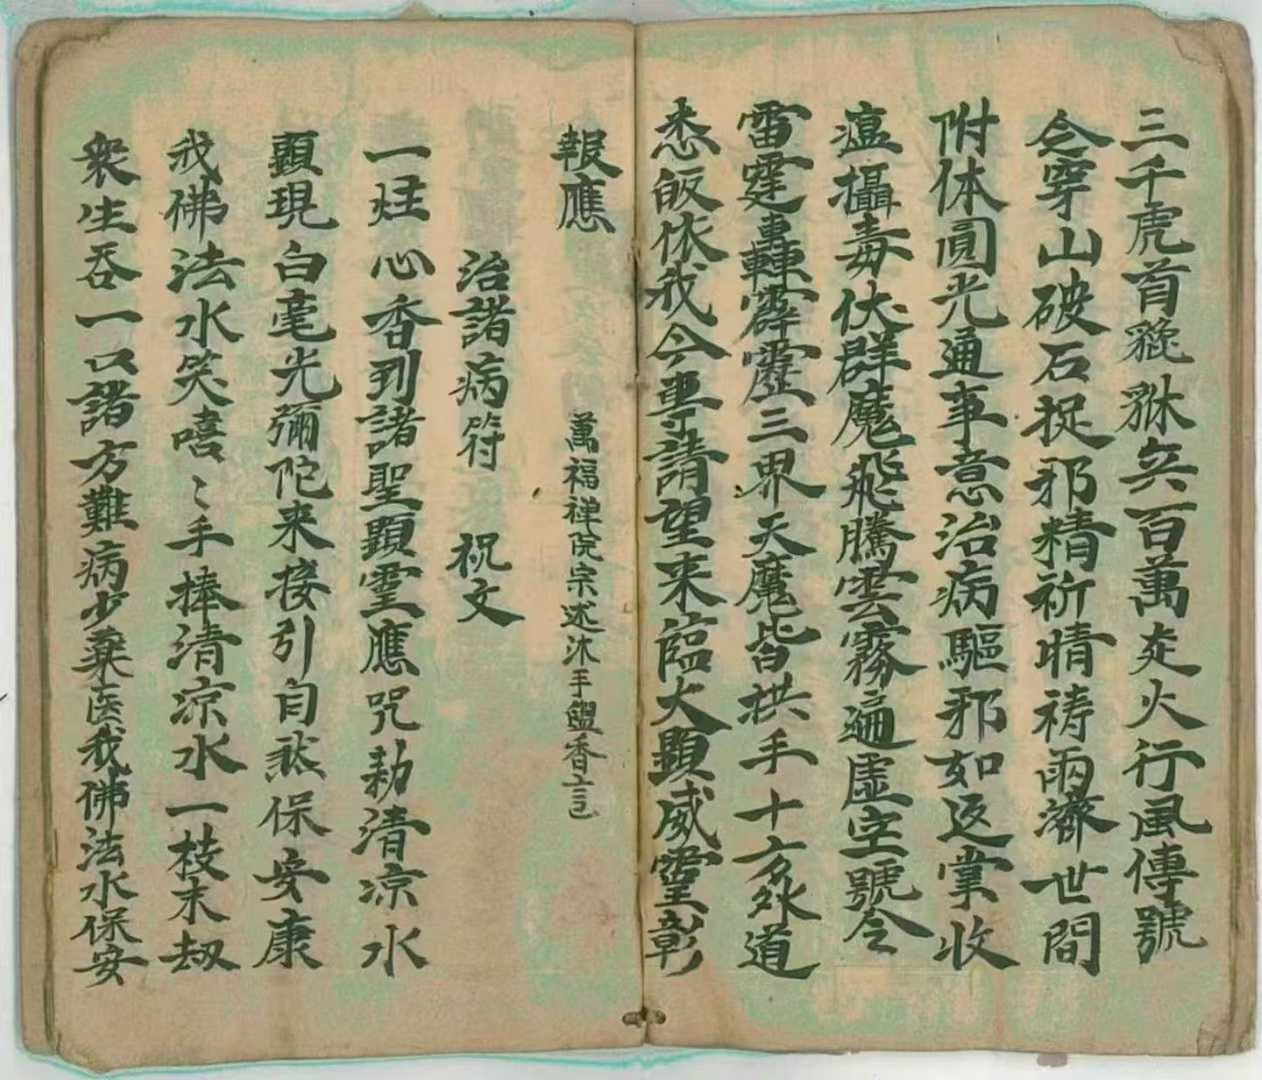 三千虎首貔貅兵百萬走火行風傳號
令穿山破石捉邪精祈晴祷雨濟世間
附体圓光通事意治病驅邪如返掌收
瘟攝毒伏群魔飛騰雲霧遍虛空號令
雷霆轟轟霹靂三界天魔皆拱手十方外道
悉皈依我今專請望来臨大顕威靈彰
報應
萬福禅院宗述沐手盥香言
治諸病符 祝文
一炷心香到諸聖顕霊應咒勅清凉水
顕現白毫光彌陀来接引自然保安康
我佛法水笑嘻〻手捧清凉水一枝末劫
衆生吞一以諸方難病少藥医我佛法水保安